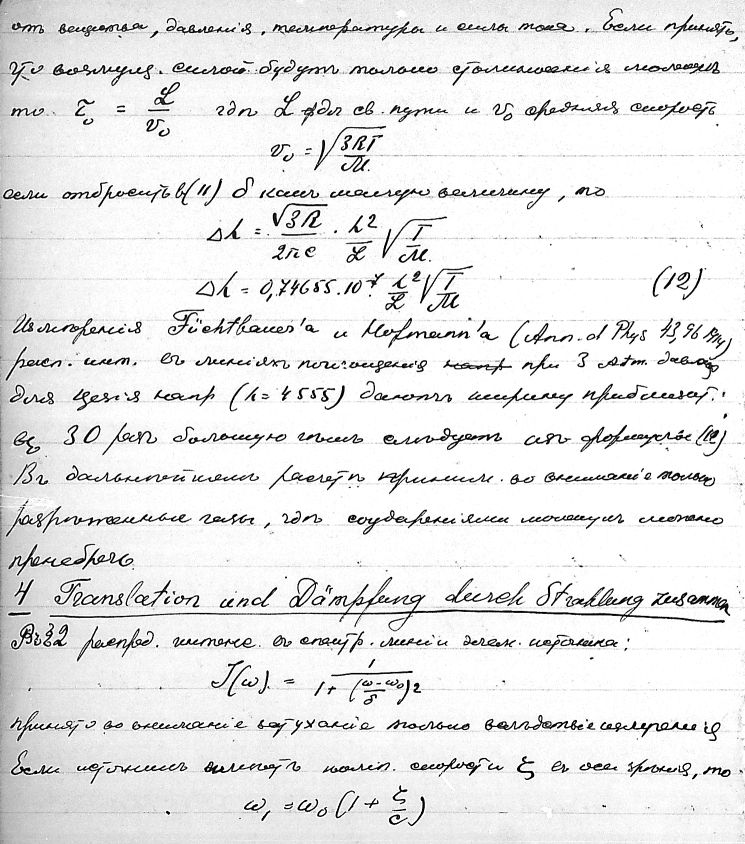 отъ вещества, давленія, температуры и силы тока. Если принять,
что возмущ. силой будутъ только столкновенія молекулъ
то τ₀ = L/v₀ гдѣ L для св. пути и v₀ средняя скорость
v₀ = √(3RT/M)
если отбросить въ (11) δ какъ малую величину, то
Δλ = √(3R)/(2πc) · λ²/L √(T/M)
Δλ = 0,74655·10⁻⁷ λ²/L √(T/M) (12)
Измѣренія Füchtbauer'a и Hofmann'a (Ann. d Phys 43, 96 1914)
расп. инт. въ линіяхъ поглощенія при 3 Atm. давл.
для цезія напр (λ = 4555) даютъ ширину приблизит.
въ 30 разъ большую чѣмъ слѣдуетъ изъ формулы (12)
Въ дальнѣйшемъ расчетѣ приним. во вниманіе только
разрѣженные газы, гдѣ соудареніями молекулъ можно
пренебречь
4 Translation und Dämpfung durch Strahlung zusammen
Въ § 2 распред. интенс. въ спектр. линіи элем. источника:
J(ω) = 1/(1 + ((ω-ω₀)/δ)²)
принято во вниманіе затуханіе только вслѣдствіе излученія
Если источникъ имѣетъ комп. скорости ξ въ оси зрѣнія, то
ω₁ = ω₀ (1 + ξ/c)